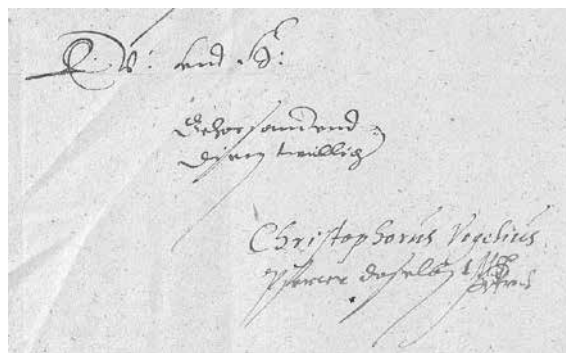 E: und H:
Gehorsam und
dienstwillig
Christophorus Vegelius
Pfarrer daselbst